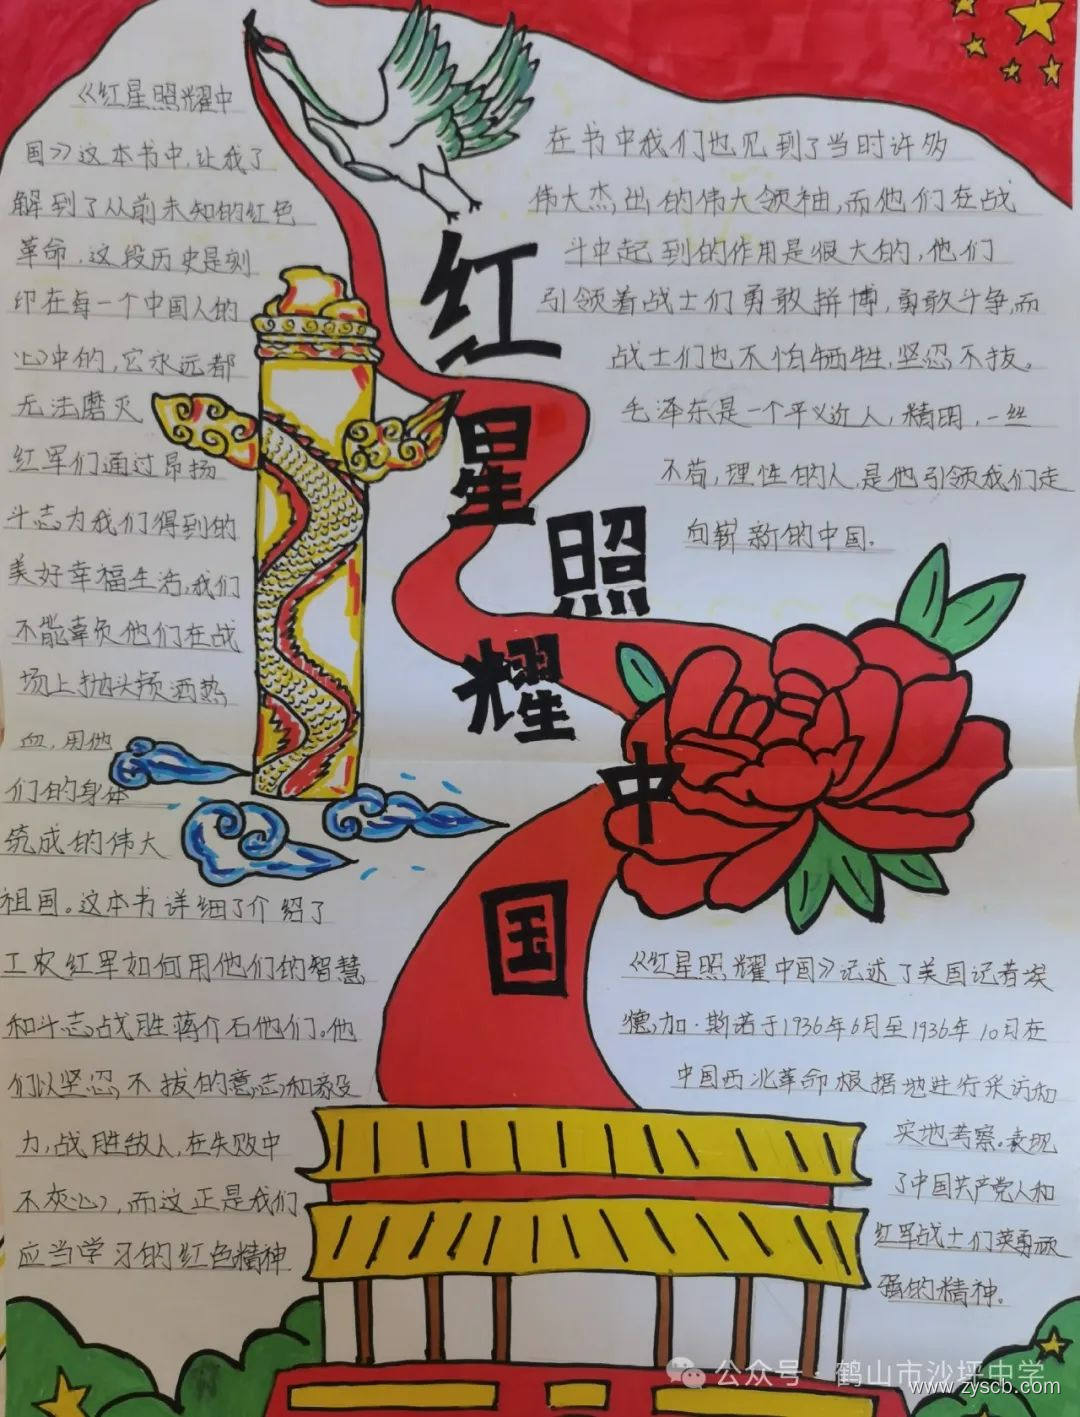 《红星照耀中
国》这本书中，让我了
解到了从前未知的红色
革命，这段历史是刻
印在每一个中国人的
心中的，它永远都
无法磨灭
红军们通过昂扬
斗志为我们得到的
美好幸福生活，我们
不能辜负他们在战
场上抛头颅洒热
血，用他
们的身体
筑成的伟大
祖国。这本书详细了介绍了
工农红军如何用他们的智慧
和斗志战胜蒋介石他们。他
们以坚忍不拔的意志和毅
力，战胜敌人，在失败中
不灰心，而这正是我们
应当学习的红色精神
红
星
照
耀
中
国
在书中我们也见到了当时许多
伟大杰出的伟大领袖，而他们在战
斗中起到的作用是很大的，他们
引领着战士们勇敢拼博，勇敢斗争，而
战士们也不怕牺牲，坚忍不拔。
毛泽东是一个平义近人，精明，一丝
不苟，理性的人，是他引领我们走
向崭新的中国。
《红星照耀中国》记述了美国记者埃
德加·斯诺于1936年6月至1936年10月在
中国西北革命根据地进行采访和
实地考察。表现
了中国共产党人和
红军战士们英勇顽
强的精神。
公众号·鹤山市沙坪中学
www.zyscb.com